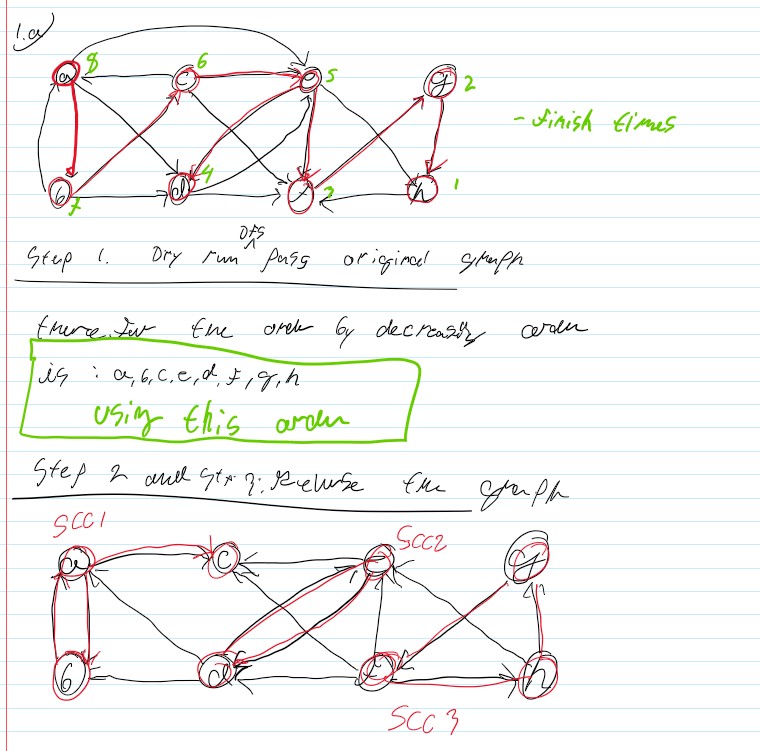 1.a)
a 8 c 6 e 5 g 2
- finish times
b 7 d 4 f 3 h 1
DFS
Step 1. Dry run pass original graph
there for the order by decreasing order
is : a, b, c, e, d, f, g, h
using this order
Step 2 and Step 3: Reverse the graph
SCC1
SCC2
a c e g
b d f h
SCC3